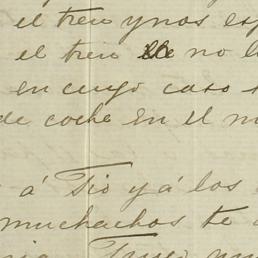 el tren y nos esp
el tren no l
en cuyo caso
de coche en el m
á Tio y á los
muchachos te